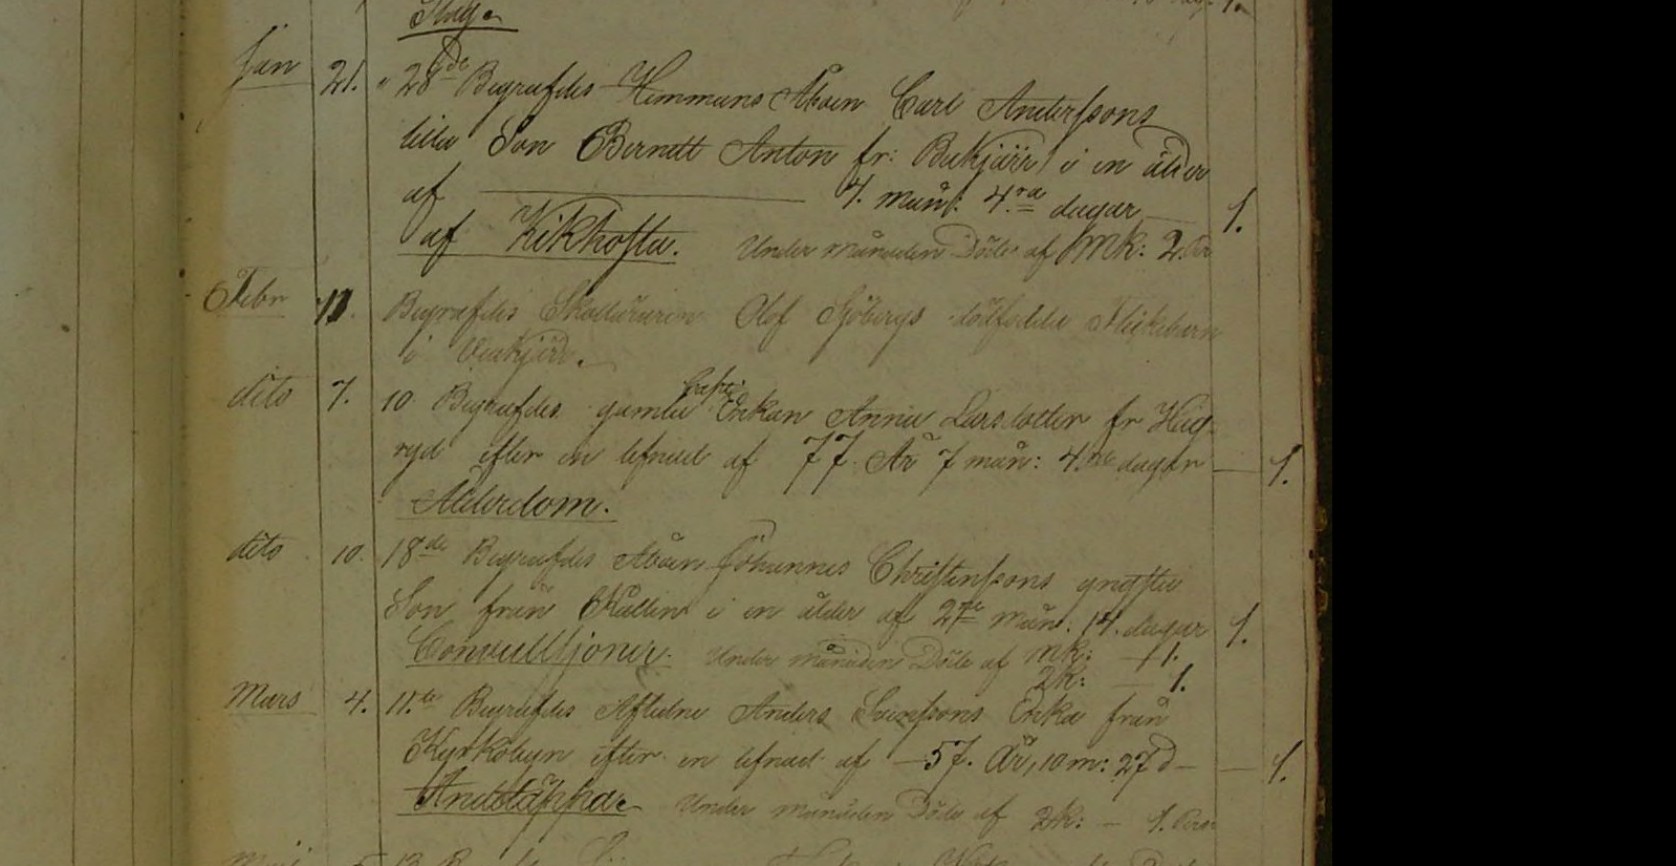 Slag.
Jan 21. " 28de Begrafdes Hemmans Åboen Carl Anderssons
lilla Son Berndt Anton fr: i en ålder
af 4. mån: 4.ra dagar 1.
af Kikhosta. Under månaden Döde af Mk: 2.
Febr 11. Begrafdes Olof Sjöbergs dödfödda Flickebarn
i
dito 7. 10 Begrafdes gamla Enkan Anna Larsdotter fr Häg-
ryd efter en lefnad af 77. År 7 mån: 4.ra dagar 1.
Ålderdom.
dito 10. 18de Begrafdes Åboen Johannes Christenssons yngsta
Son från Källin i en ålder af 2ne mån: 14. dagar 1.
Convultsjoner. Under månaden Döde af mk: 1.
2k: 1.
Mars 4. 11.te Begrafdes Aflidne Anders Svenssons Enka från
Kyrkobyn efter en lefnad af 57. År, 10 m: 27 d 1.
Andetäppa Under månaden Döde af 2k: 1.